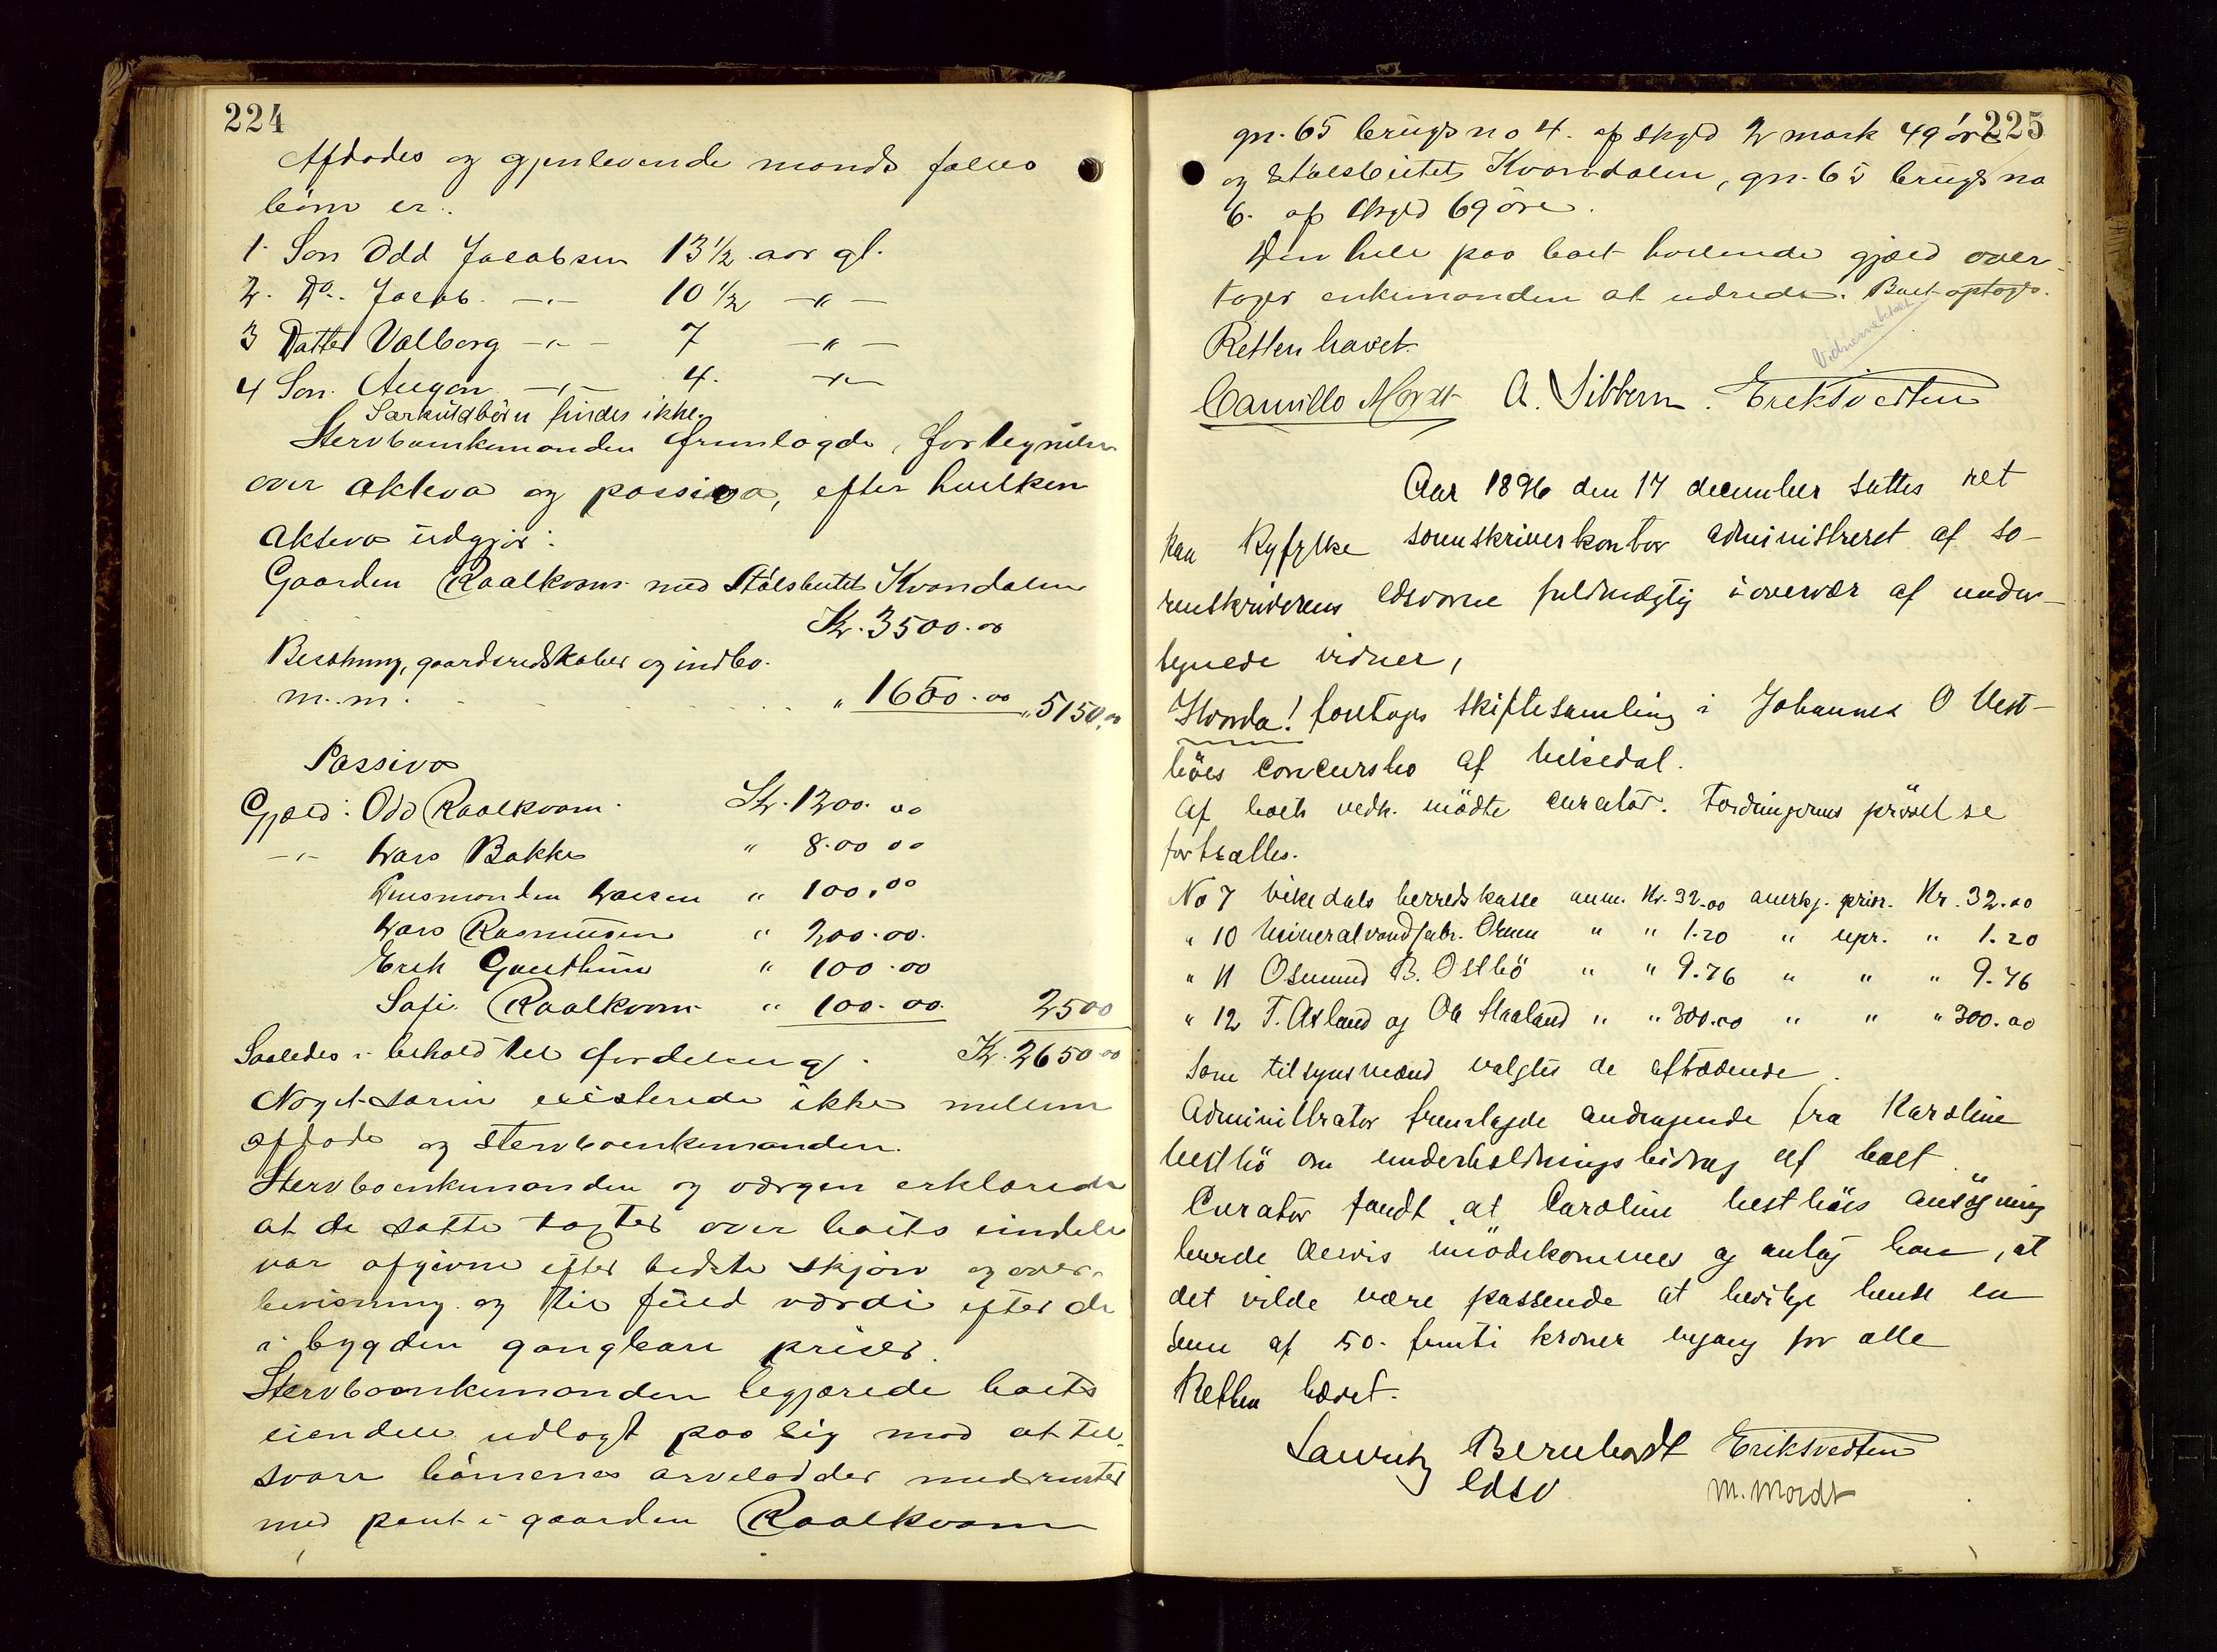 224
Afdødes og gjenlevende mands fælles
børn er:
1. Søn Odd Jacobsen 13 1/2 aar gl.
2. Do. Jacob —"— 10 1/2 —"—
3 Datter Valborg —"— 7 —"—
4 Søn. August —"— 4. —"—
Særkuldbørn findes ikke.
Stervboenkemanden fremlagde fortegnelse
over aktiva og passiva, efter hvilken
Aktiva udgjør:
Gaarden Raalkvam med Stølsbeitet Kvandalen
Kr. 3500.00
Besætning, gaardsredskaber og indbo
m.m. " 1650.00 " 5150,00
Passiva
Gjæld: Odd Raalkvam Kr. 1200.00
—"— Lars Bakke " 800 00
Lensmanden Larsen " 100.00
Lars Rasmussen " 200.00.
Erik Gauthun " 100.00
Sofi Raalkvam " 100.00. 2500
Saaledes i behold til fordeling Kr. 2650.00
Noget særeie existerede ikke mellem
afdøde og stervboenkemanden.
Stervboenkemanden og værgen erklærede
at de satte taxter over boets eiendele
var afgivne efter bedste skjøn og over-
bevisning og til fuld værdi efter de
i bygden gangbare priser.
Stervboenkemanden begjærede boets
eiendele udlagt paa sig mod at til-
svare børnenes arvelodder
med pant i gaarden Raalkvam
225
gn. 65 brugs no 4. af skyld 2 mark 49 øre
og Stølsbeitet Kvandalen, gn. 65 brugs no
6. af skyld 69 øre.
Den hele paa boet hvilende gjæld over-
tager enkemanden at udrede. Boet optoges.
Vidnerne betalt
Retten hævet.
Camillo Mordt A. Sibbern. Erik Tvedten
Aar 1896 den 17 december sattes ret
paa Ryfylke sorenskriverkontor administreret af so-
renskriverens edsvorne fuldmægtig i overvær af under-
tegnede vidner,
Hvorda! foretoges skiftesamling i Johannes O Vest-
bøes concursbo af Vikedal.
Af boets vedk. mødte curator. Fordringernes prøvelse
fortsattes.
No 7 Vikedals herredskasse anm. Kr. 32.00 anerkj. prior. Kr. 32.00
" 10 Mineralvandfabr. Ørnen " " 1.20 " upr. " 1.20
" 11 Osmund B. Østbø " " 9.76 " " " 9.76
" 12 T. Axland og Ole Staaland " " 300.00 " " " 300.00
Som tilsynsmænd valgtes de aftrædende.
Administrator fremlagde andragende fra Karoline
Vestbø om underholdningsbidrag af boet.
Curator fandt at Caroline Vestbøs ansøgning
burde delvis imødekommes og antog han, at
det vilde være passende at bevilge hende en
sum af 50. femti kroner engang for alle
Retten hævet.
Lauritz Bernhardt Erik Tvedten
edsv M. Mordt